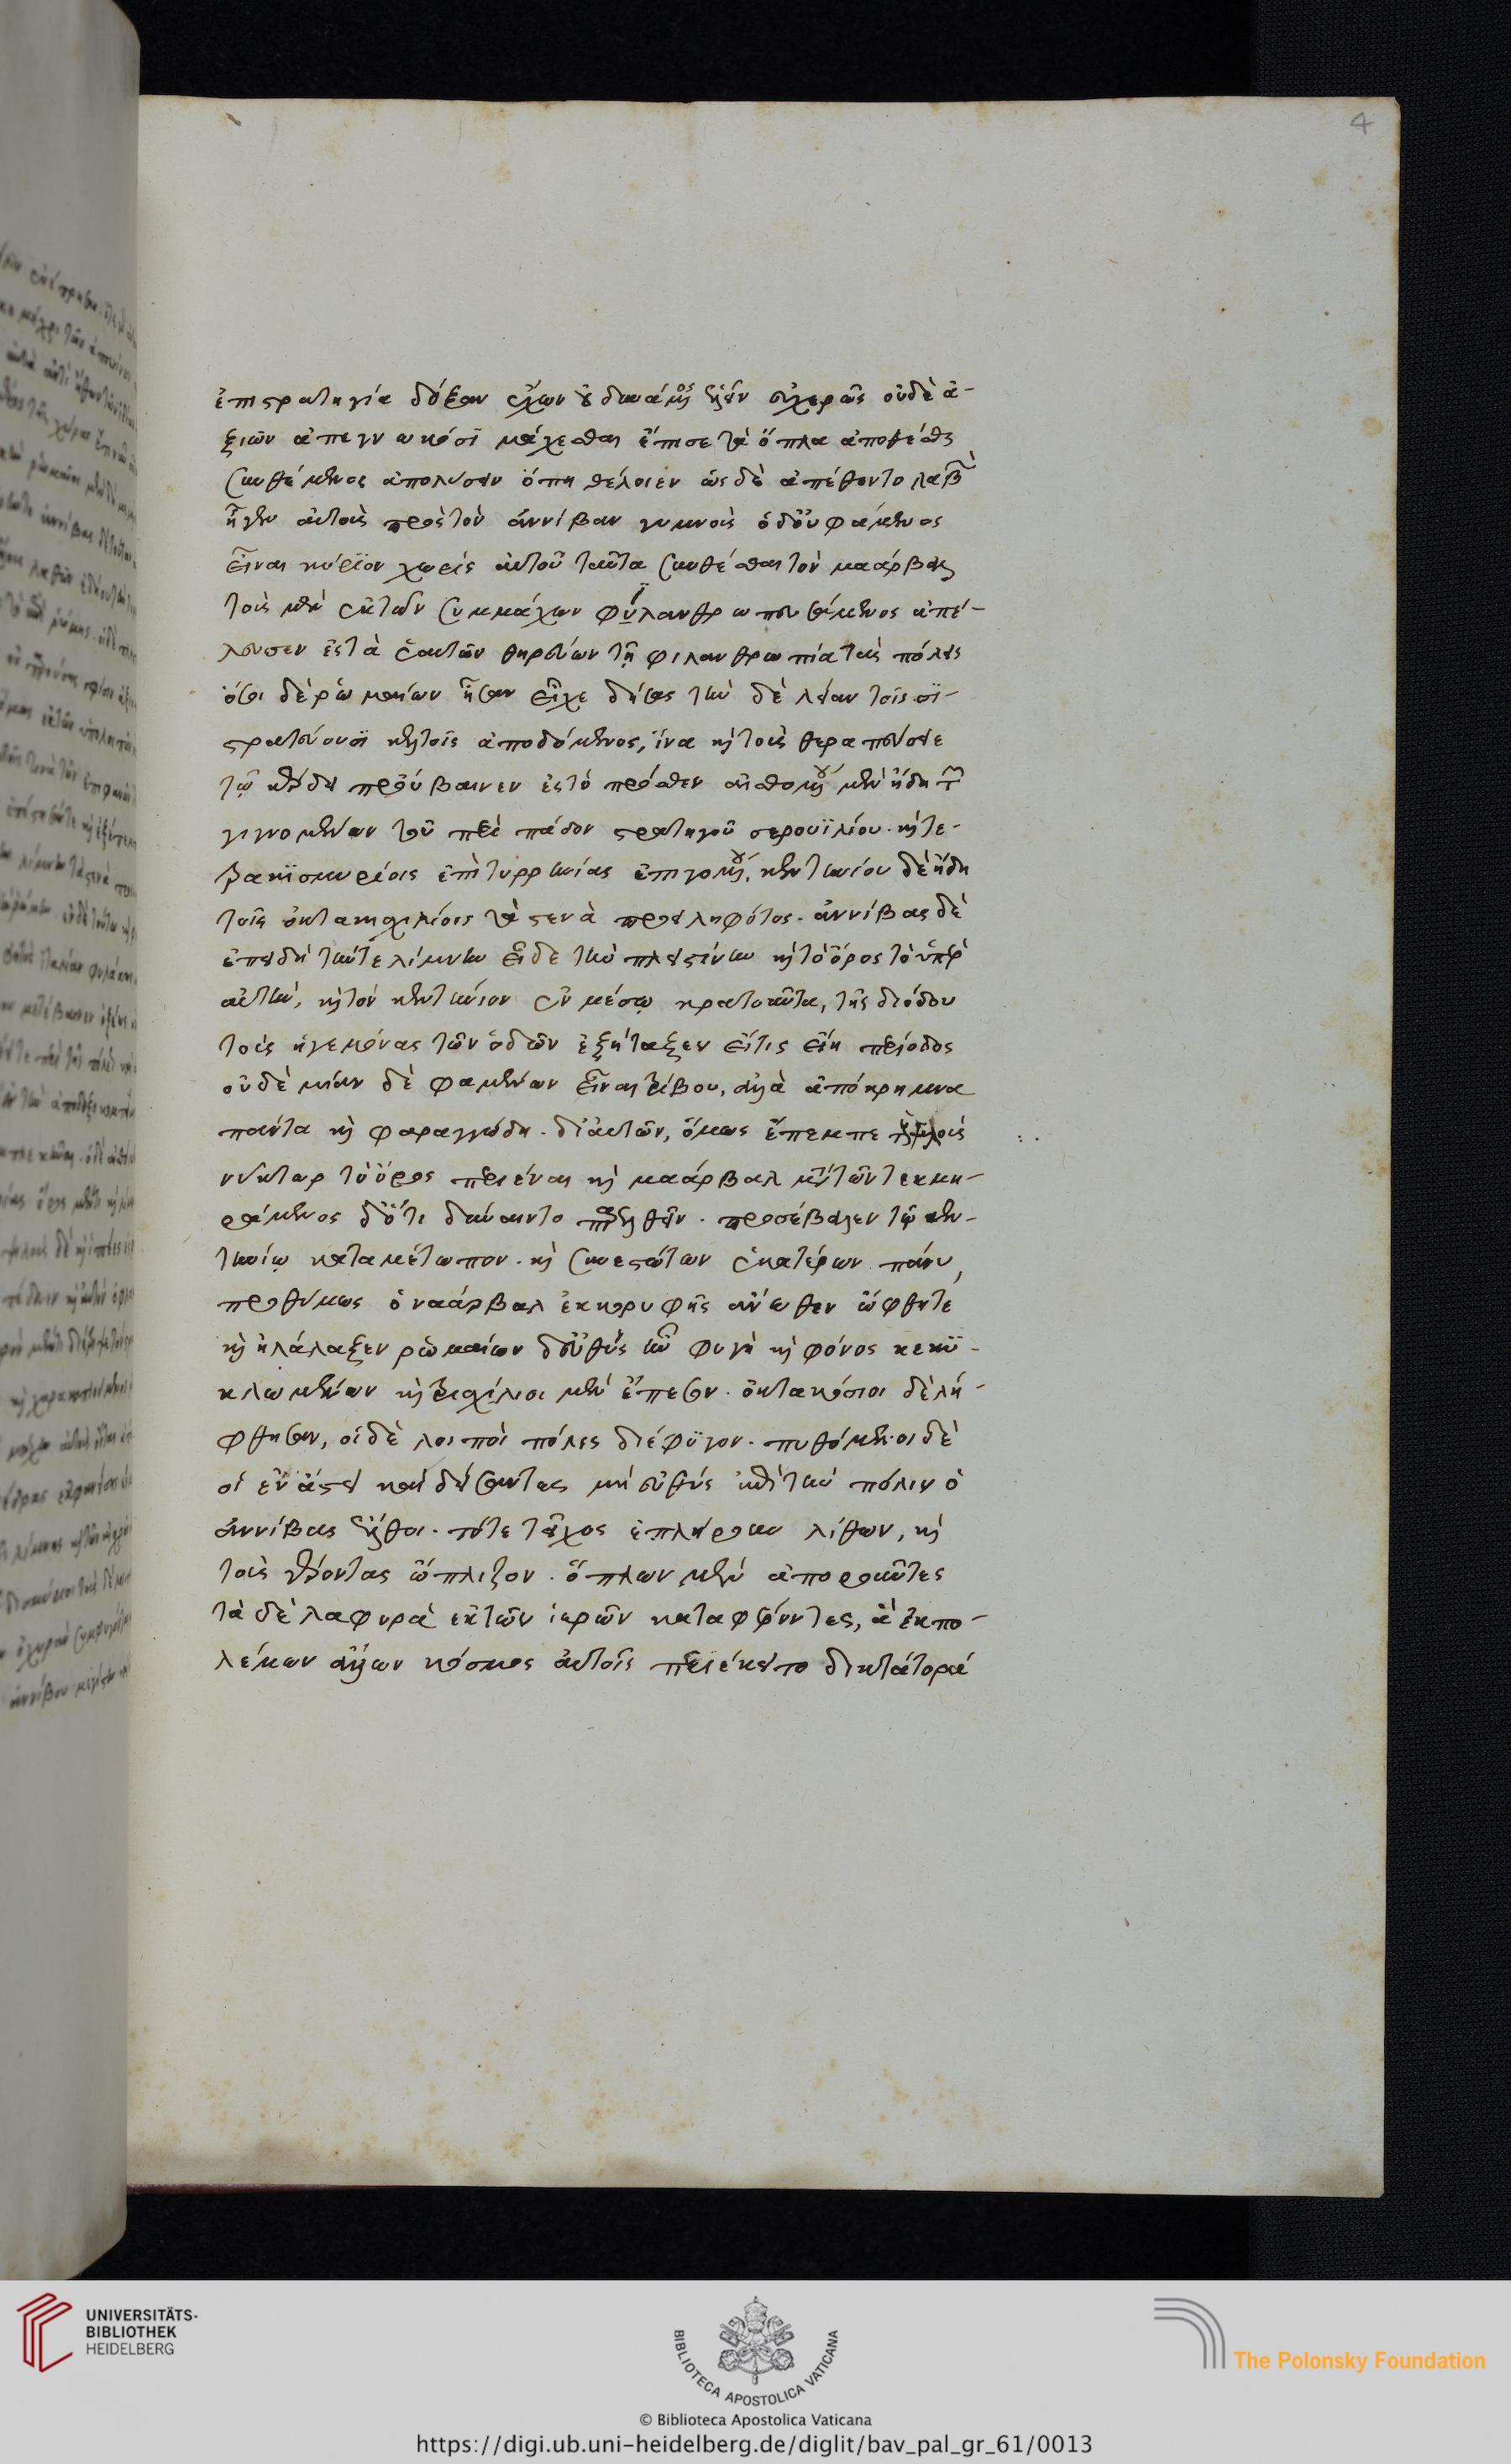 ἐπιστρατηγία δόξαν ἔχων οὐ δυνάμενος ἑλεῖν εὐχερῶς οὐδὲ ἀ-
ξιῶν ἀπεγνωκόσϊ μάχεσθαι ἔπεισε τὰ ὅπλα ἀποθέσθαι
συνθέμενος ἀπολύσειν ὅπη θέλοιεν ὡς δὲ ἀπέθεντο λαβὼν
ἦγεν αὐτοὺς πρὸς τὸν ἀννίβαν γυμνοὺς ὁ δοὐ φάμενος
εἶναι κύριον χωρὶς αὐτοῦ ταῦτα συνθέσθαι τὸν μαάρβαλ
τοὺς μὲν ἐκ τῶν συμμάχων φϋλανθρωπευσάμενος ἀπέ-
λουσεν ἐς τὰ ἑαυτῶν θηρεύων τῇ φιλανθρωπία τὰς πόλεις
ὅσοι δὲ ῥωμαίων ἦσαν εἶχε δήσας τὴν δὲ λείαν τοῖς σϊ-
στρατεύουσϊ κελτοῖς ἀποδόμενος, ἵνα καὶ τοὺς θεραπεύσειε
τῷ κέρδει προύβαινεν ἐς τὸ πρόσθεν αἰσθομένου μὲν ἤδη τῶν
γιγνομένων τοῦ περὶ πάδον στρατηγοῦ σερουϊλίου. καὶ τε-
βακϊσμυρίοις ἐπὶ τυρρηνίας ἐπηγομένου, κεντηνίου δὲ ἤδη
τοῖς ὀκτακηχιλίοις τὰ στενὰ προειληφότος. ἀννίβας δὲ
ἐπειδὴ τήν τε λίμνην εἶδε τὴν πλειστίνην καὶ τὸ ὄρος τὸ ὑπὲρ
αὐτὴν, καὶ τὸν κεντήνιον ἐν μέσῳ κρατοῦντα, τῆς διόδου
τοὺς ἡγεμόνας τῶν ὁδῶν ἐξήταξεν εἴτις εἴη περίοδος
οὐδὲ μίαν δὲ φαμένων εἶναι τρίβου, ἀλλὰ ἀπόκρημνα
πάντα καὶ φαραγγώδη. δι αὐτῶν, ὅμως ἔπεμπε τοὺς ψιλοὺς
νύκταρ τὸ ὄρος περιέναι καὶ μαάρβαλ μετ αὐτῶν τεκμη-
ράμενος δ ὅτι δύναιντο περιελθεῖν. προσέβαλεν τῷ κεν-
τηνίῳ κατα μέτωπον. καὶ συνεστώτων ἑκατέρων πάνυ,
προθύμως ὁ ναάρβαλ ἐκκορυφῆς ἄνωθεν ὤφθητε
καὶ ἠλάλαξεν ῥωμαίων δ εὐθὺς ἦν φυγὴ καὶ φόνος κεκϋ-
κλωμένων καὶ τρισχίλιοι μὲν ἔπεσον. ὀκτακόσιοι δὲ λή-
φθησαν, οἱ δὲ λοιποὶ πόλεις διέφϋγον. πυθόμενοι δὲ
οἱ ἐν ἄστει καὶ δείσαντες μὴ εὐθὺς ἐπὶ τὴν πόλιν ὁ
ἀννίβας ἔλθοι. τότε τεῖχος ἐπλήρουν λίθων, καὶ
τοὺς γέροντας ὥπλιζον. ὅπλων μὲν ἀποροῦντες
τὰ δὲ λαφυρὰ ἐκ τῶν ἱερῶν καταφέροντες, ἃ ἐκπο-
λέμων ἄλλων κόσμος αὐτοῖς περιέκειτο δικτάτορά
4
UNIVERSITÄTS-
BIBLIOTHEK
HEIDELBERG
BIBLIOTECA APOSTOLICA VATICANA
© Biblioteca Apostolica Vaticana
The Polonsky Foundation
https://digi.ub.uni-heidelberg.de/diglit/bav_pal_gr_61/0013